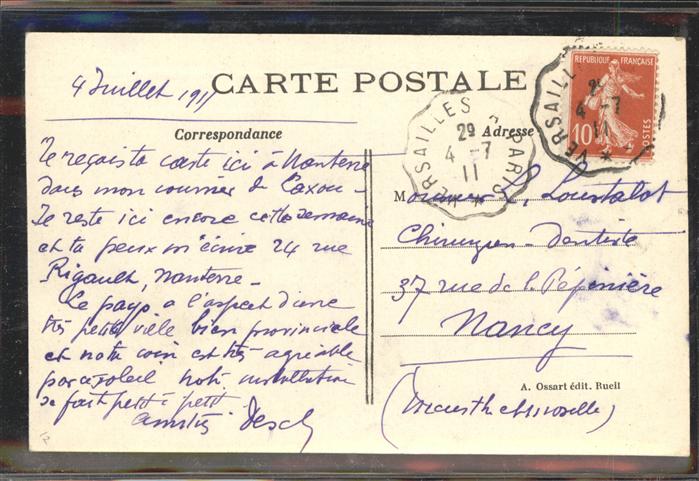 4 Juillet 1911
CARTE POSTALE
Correspondance
Adresse
Je reçois ta carte ici à Nanterre
dans mon courrier de Laxou -
Je reste ici encore cette semaine
et tu peux m'écrire 24 rue
Rigault, Nanterre -
Ce pays a l'aspect d'une
très petite ville bien provinciale
et notre coin est très agréable
par ce soleil notre installation
se fait petit à petit
Amitiés Desch
Monsieur L. Loustalot
Chirurgien-Dentiste
37 rue de la Pépinière
Nancy
(Meurthe et Moselle)
A. Ossart édit. Rueil
VERSAILLES A PARIS
29
4 -7
11
VERSAILLES
29
4 -7
11
REPUBLIQUE FRANÇAISE
10
POSTES
12